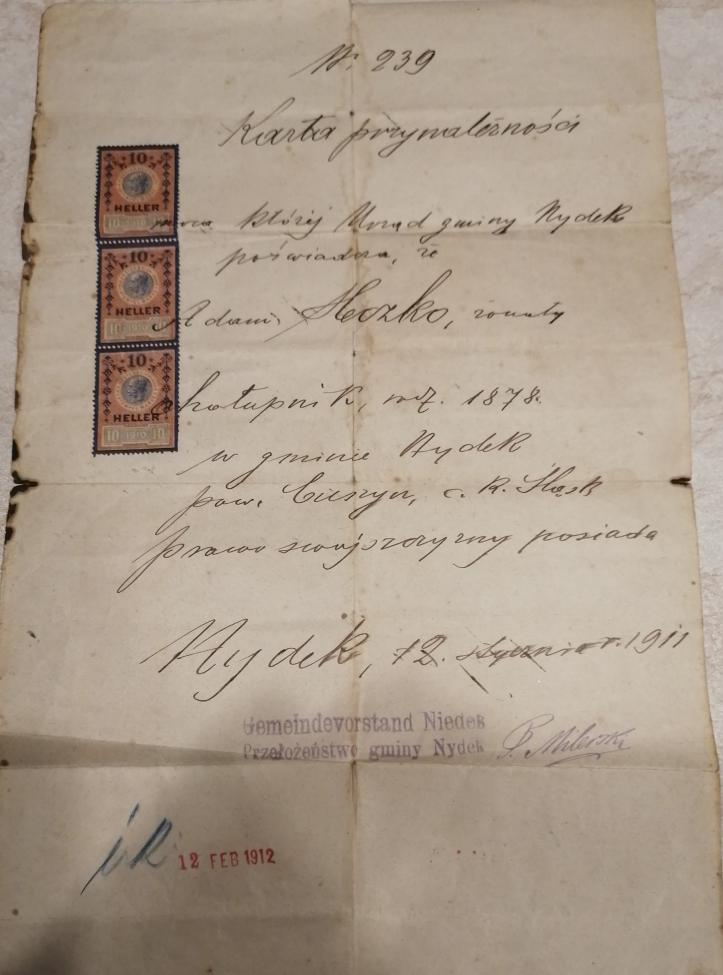 Nr. 239
Karta przynależności
10
HELLER
10 1910 10
10
HELLER
10 1910 10
10
HELLER
10 1910 10
mocą której Urząd gminy Nydek
poświadcza, że
Adam Heczko, zonaty
chałupnik, urdz. 1878.
w gminie Nydek
pow. Cieszyn, c. k. Śląsk
prawo swojszczyzny posiada
Nydek, 12. stycznia 1911
Gemeindevorstand Niedek
Przełożeństwo gminy Nydek
P. Milerski
12 FEB 1912